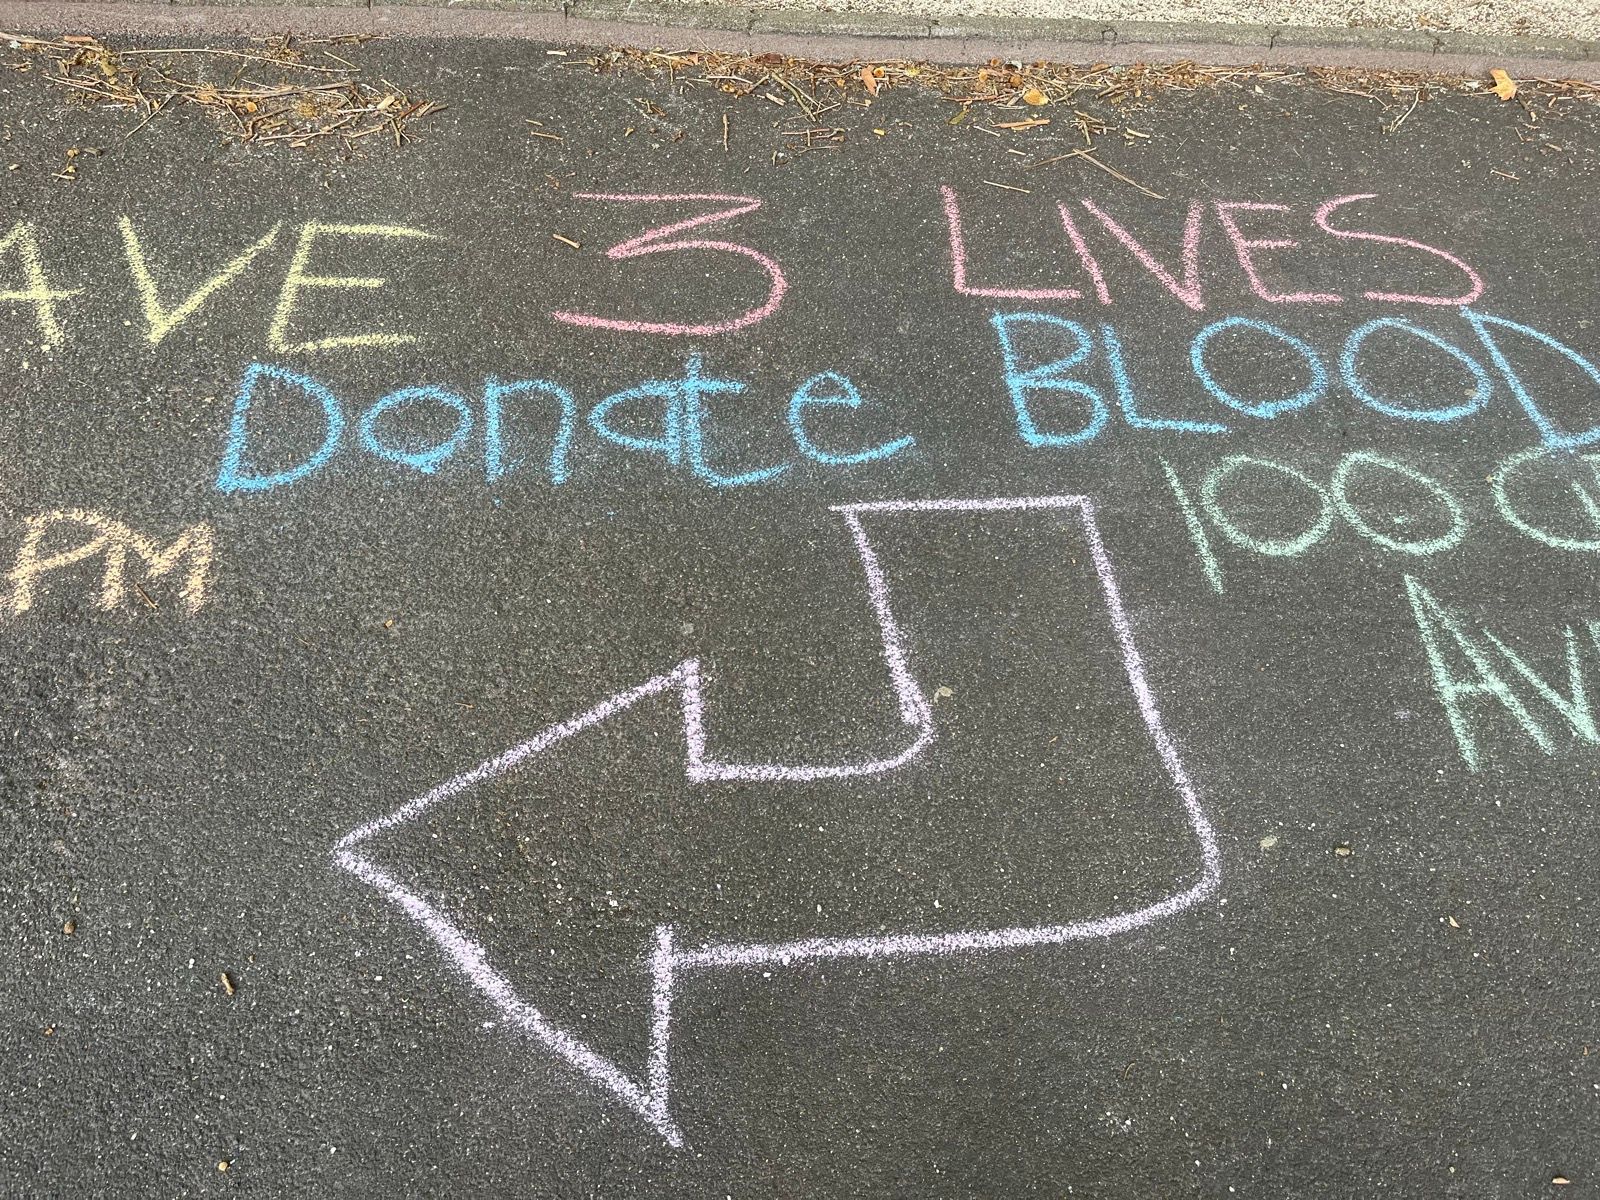 AVE 3 LIVES
Donate BLOOD
100
PM
AV